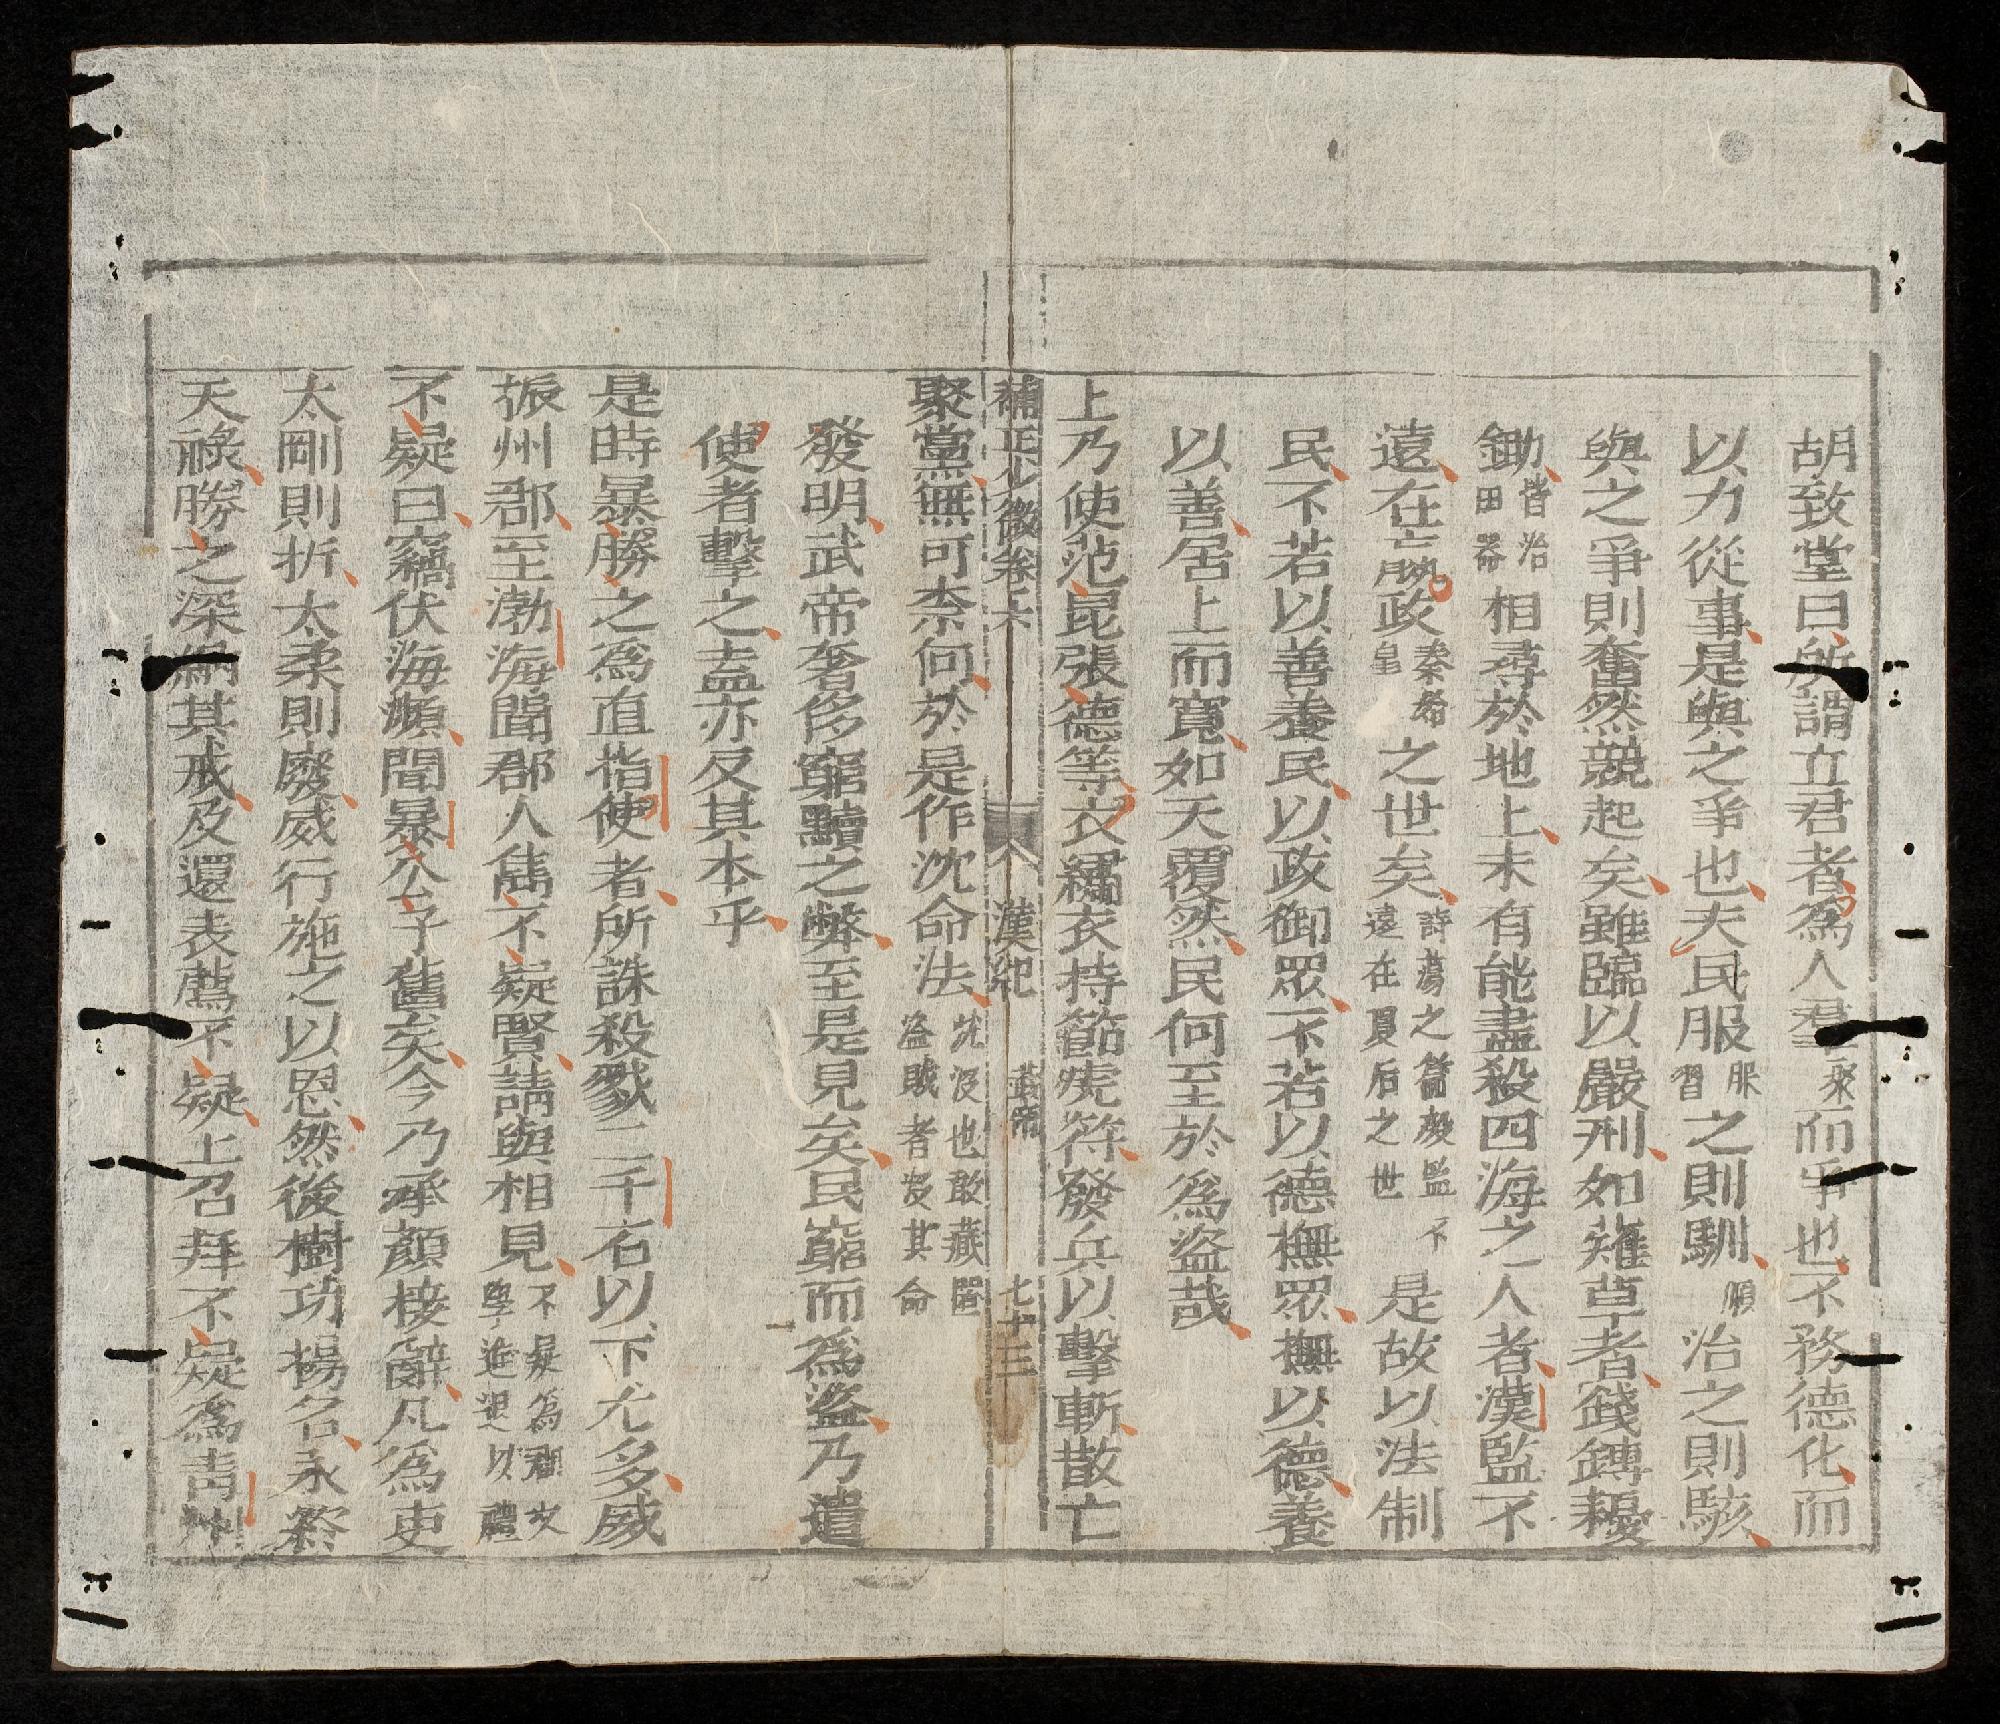 胡致堂曰所謂立君者爲人羣聚而爭也不務德化而
以力從事是與之爭也夫民服服習之則馴順治之則駭
與之爭則奮然競起矣雖臨以嚴刑如薙草者錢鎛耰
鋤皆治田器相尋於地上未有能盡殺四海之人者漢監不
遠在亡胸政秦始皇之世矣詩蕩之篇殷監不遠在夏后之世是故以法制
民不若以善養民以政御眾不若以德撫眾撫以德養
以善居上而寬如天覆然民何至於爲盜哉
上乃使范昆張德等衣繡衣持節虎符發兵以擊斬散亡
補正少微卷六 漢紀 武帝 七十三
聚黨無可柰何於是作沈命法沈沒也敢藏匿盜賊者沒其命
發明武帝奢侈窮黷之弊至是見矣民窮而爲盜乃遣
使者擊之盍亦反其本乎
是時暴勝之爲直指使者所誅殺戮二千石以下尤多威
振州郡至渤海聞郡人雋不疑賢請與相見不疑爲郡文學進退以禮
不疑曰竊伏海瀕聞暴公子舊矣今乃承顏接辭凡爲吏
太剛則折太柔則廢威行施之以恩然後樹功揚名永終
天祿勝之深納其戒及還表薦不疑上召拜不疑爲靑州